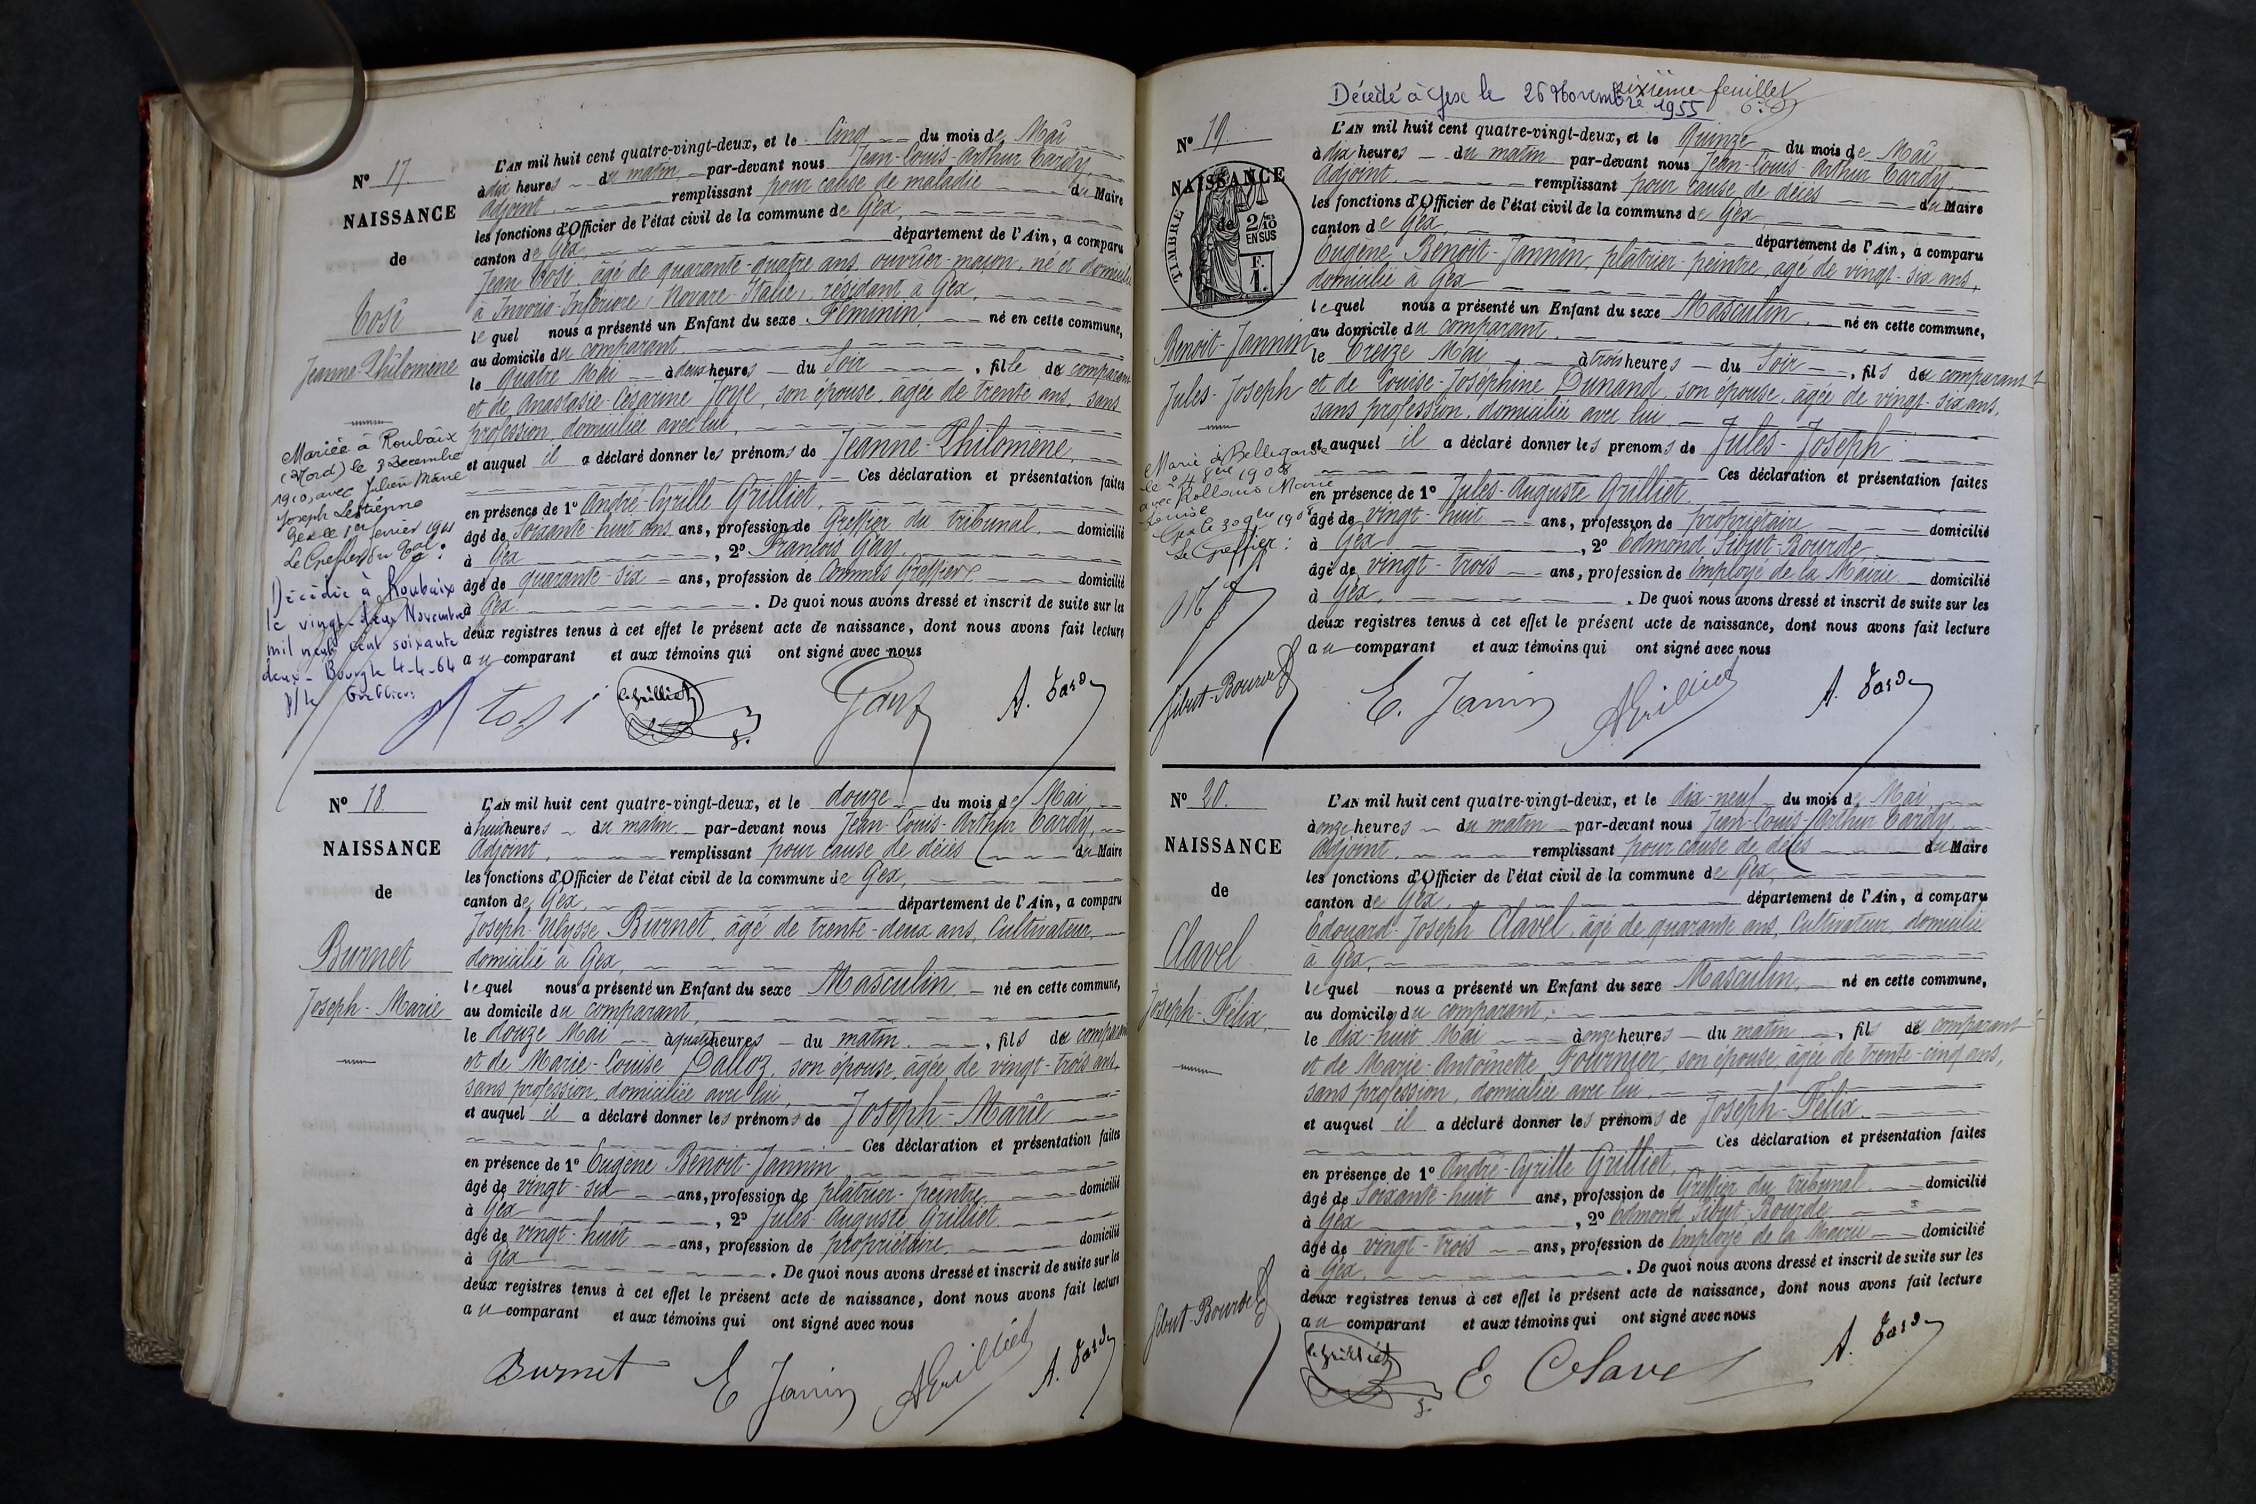 Nº 17.
NAISSANCE
de
Tosi
Jeanne-Philomène
Mariée à Roubaix
(Nord) le 3 Decembre
1910, avec Julien Marie
Joseph Lestienne
Gex le 1er fevrier 1911
Le Greffier du Tal :
Décédée à Roubaix
le vingt-deux Novembre
mil neuf cent soixante
deux - Bourg le 4-4-64
P/ le Greffier:
L'AN mil huit cent quatre-vingt-deux, et le Cinq du mois de Mai
à dix heures du matin par-devant nous Jean-Louis-Arthur Tardy,
Adjoint, remplissant pour cause de maladie du Maire
les fonctions d'Officier de l'état civil de la commune de Gex,
canton de Gex, département de l'Ain, a comparu
Jean Tosi, âgé de quarante-quatre ans, ouvrier-maçon, né et domicilié
à Invorio-Inferiore, Novare-Italie, résidant à Gex,
lequel nous a présenté un Enfant du sexe Féminin, né en cette commune,
au domicile du comparant
le quatre Mai à deux heures du Soir, fille du comparant
et de Anastasie-Césarine Joye, son épouse, âgée de trente ans, sans
profession, domiciliée avec lui,
et auquel il a déclaré donner les prénoms de Jeanne-Philomène,
Ces déclaration et présentation faites
en présence de 1º André-Cyrille Grilliet,
âgé de Soixante-huit ans ans, profession de Greffier du tribunal, domicilié
à Gex, 2º François Gay,
âgé de quarante-six ans, profession de Commis Greffier domicilié
à Gex. De quoi nous avons dressé et inscrit de suite sur les
deux registres tenus à cet effet le présent acte de naissance, dont nous avons fait lecture
au comparant et aux témoins qui ont signé avec nous
tosi C. Grilliet Gay A. Tardy
Nº 18
NAISSANCE
de
Burnet
Joseph-Marie
L'AN mil huit cent quatre-vingt-deux, et le douze du mois de Mai,
à huit heures du matin par-devant nous Jean-Louis-Arthur Tardy,
Adjoint, remplissant pour cause de décès du Maire
les fonctions d'Officier de l'état civil de la commune de Gex,
canton de Gex, département de l'Ain, a comparu
Joseph-Ulysse Burnet, âgé de trente-deux ans, Cultivateur,
domicilié à Gex,
lequel nous a présenté un Enfant du sexe Masculin, né en cette commune,
au domicile du comparant,
le douze Mai à quatre heures du matin, fils du comparant
et de Marie-Louise Dalloz, son épouse, âgée de vingt-trois ans,
sans profession, domiciliée avec lui,
et auquel il a déclaré donner les prénoms de Joseph-Marie
Ces déclaration et présentation faites
en présence de 1º Eugène Benoit-Jannin
âgé de vingt-six ans, profession de plâtrier-peintre domicilié
à Gex, 2º Jules-Auguste Grilliet
âgé de vingt-huit ans, profession de propriétaire domicilié
à Gex. De quoi nous avons dressé et inscrit de suite sur les
deux registres tenus à cet effet le présent acte de naissance, dont nous avons fait lecture
au comparant et aux témoins qui ont signé avec nous
Burnet E Janin A Grilliet A. Tardy
sixième feuillet
Décédé à Gex le 26 Novembre 1955
Nº 19.
NAISSANCE
TIMBRE
de 2/10
EN SUS
F.
1.
Benoit-Jannin
Jules-Joseph
Marié à Bellegarde
le 24 8bre 1908
avec Rollans Marie
Louise
Gex le 30 9bre 1908
Le Greffier:
Sibut-Bourde
L'AN mil huit cent quatre-vingt-deux, et le Quinze du mois de Mai
à dix heures du matin par-devant nous Jean-Louis-Arthur Tardy,
Adjoint, remplissant pour cause de décès du Maire
les fonctions d'Officier de l'état civil de la commune de Gex
canton de Gex département de l'Ain, a comparu
Eugène Benoit-Jannin, plâtrier-peintre, âgé de vingt-six ans,
domicilié à Gex
lequel nous a présenté un Enfant du sexe Masculin, né en cette commune,
au domicile du comparant,
le Treize Mai à trois heures du Soir, fils du comparant
et de Louise-Joséphine Dunand, son épouse, âgée de vingt-six ans,
sans profession, domiciliée avec lui
et auquel il a déclaré donner les prenoms de Jules-Joseph
Ces déclaration et présentation faites
en présence de 1º Jules-Auguste Grilliet
âgé de vingt-huit ans, profession de propriétaire domicilié
à Gex, 2º Edmond Sibut-Bourde
âgé de vingt-trois ans, profession de Employé de la Mairie domicilié
à Gex. De quoi nous avons dressé et inscrit de suite sur les
deux registres tenus à cet effet le présent acte de naissance, dont nous avons fait lecture
au comparant et aux témoins qui ont signé avec nous
E. Janin A Grilliet A. Tardy
Nº 20.
NAISSANCE
de
Clavel
Joseph-Félix,
Sibut-Bourde
L'AN mil huit cent quatre-vingt-deux, et le dix-neuf du mois de Mai
à onze heures du matin par-devant nous Jean-Louis-Arthur Tardy,
Adjoint, remplissant pour cause de décès du Maire
les fonctions d'Officier de l'état civil de la commune de Gex,
canton de Gex, département de l'Ain, a comparu
Edouard-Joseph Clavel, âgé de quarante ans, Cultivateur, domicilié
à Gex,
lequel nous a présenté un Enfant du sexe Masculin, né en cette commune,
au domicile du comparant,
le dix-huit Mai à onze heures du matin, fils du comparant
et de Marie-Antoinette Fournier, son épouse, âgée de trente-cinq ans,
sans profession, domiciliée avec lui,
et auquel il a déclaré donner les prénoms de Joseph-Félix
Ces déclaration et présentation faites
en présence de 1º André-Cyrille Grilliet,
âgé de Soixante-huit ans, profession de Greffier du tribunal domicilié
à Gex, 2º Edmond Sibut-Bourde
âgé de vingt-trois ans, profession de Employé de la Mairie domicilié
à Gex. De quoi nous avons dressé et inscrit de suite sur les
deux registres tenus à cet effet le présent acte de naissance, dont nous avons fait lecture
au comparant et aux témoins qui ont signé avec nous
C. Grilliet E Clavel A. Tardy